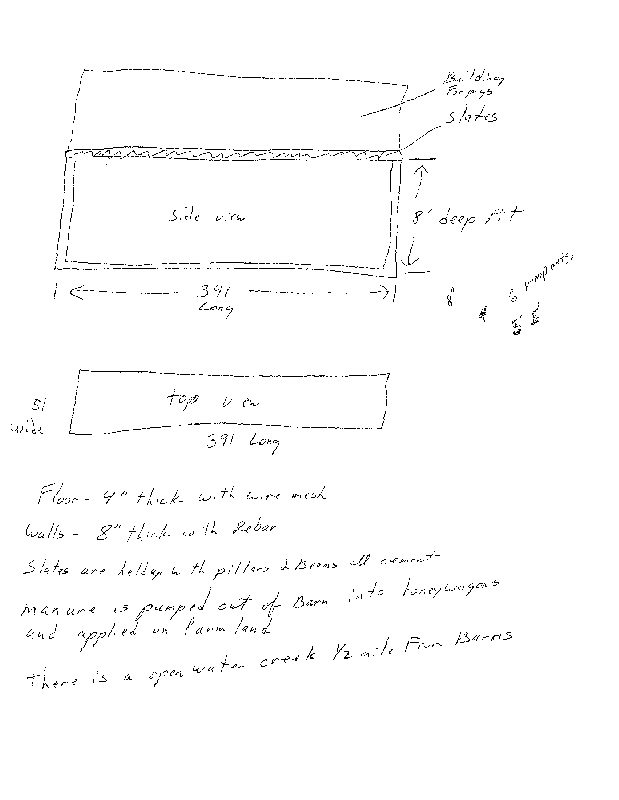 Building
For pigs
Slates
Side view
8' deep pit
391
Long
8'
6 pumpouts
51
wide
top view
391 Long
Floor - 4" thick with wire mesh
Walls - 8" thick with Rebar
Slates are held up with pillars & Beams all cement
manure is pumped out of Barn into honeywagons
and applied on farm land
there is a open water creek 1/2 mile From Barns